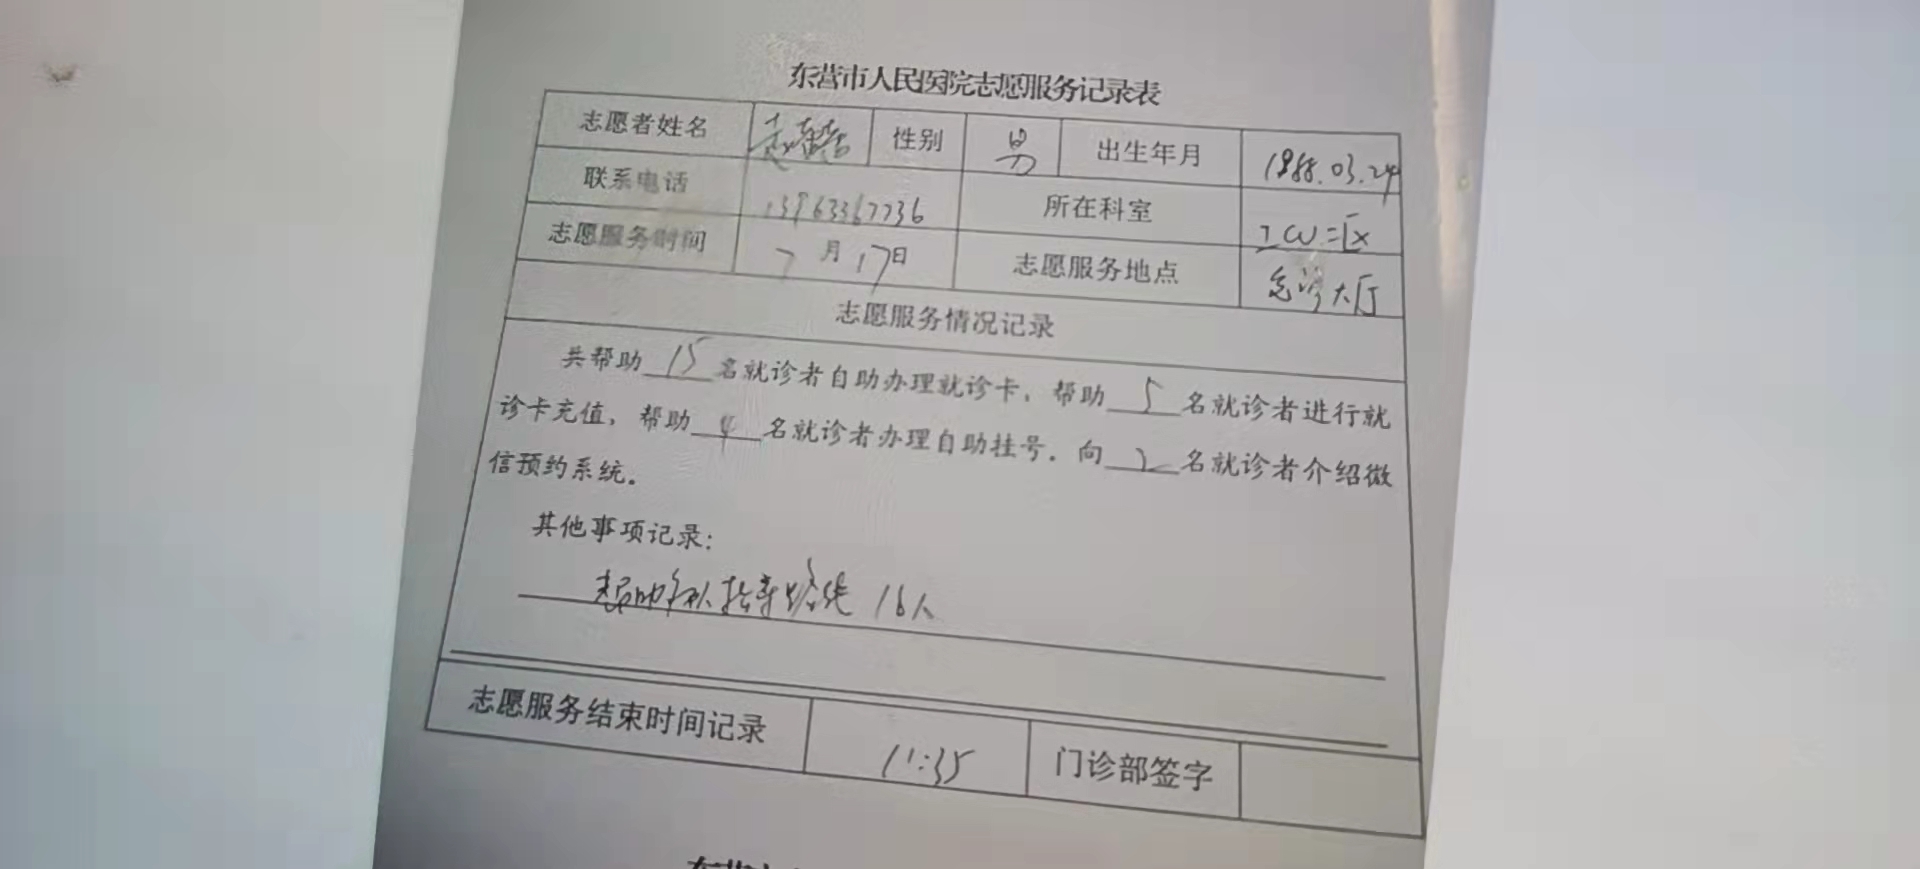 东营市人民医院志愿服务记录表
志愿者姓名 性别 男 出生年月 1988.03.24
联系电话 13963367736 所在科室 ICU二区
志愿服务时间 7月17日 志愿服务地点 急诊大厅
志愿服务情况记录
共帮助15名就诊者自助办理就诊卡，帮助5名就诊者进行就
诊卡充值，帮助4名就诊者办理自助挂号，向2名就诊者介绍微
信预约系统。
其他事项记录：
帮助病人指导路线 16人
志愿服务结束时间记录 11:35 门诊部签字